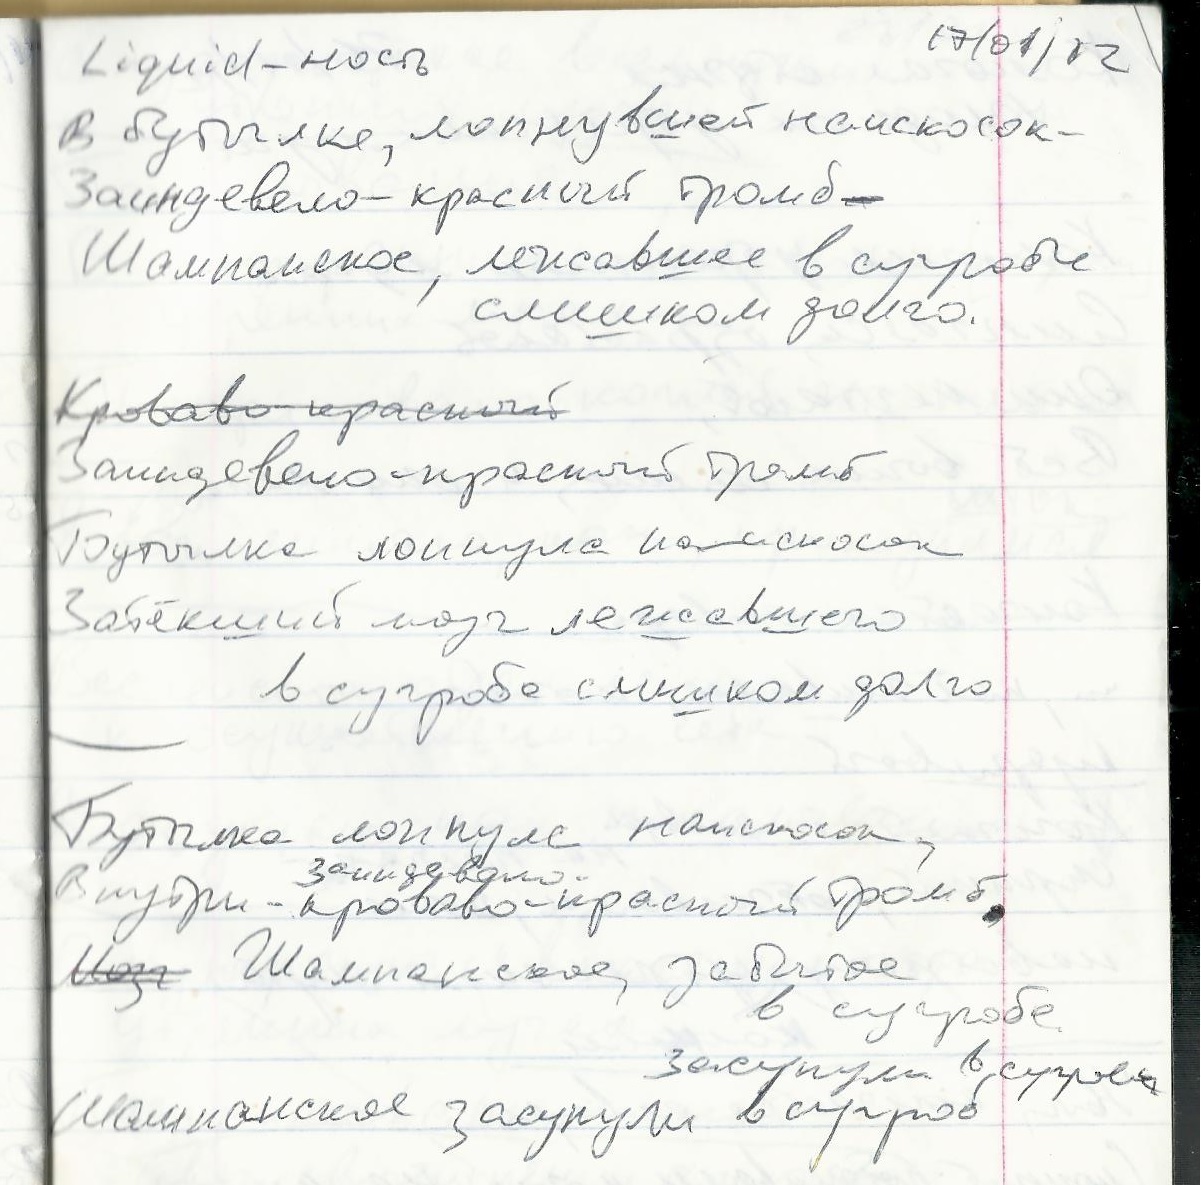 17/01/12
Liquid-ность
В бутылке, лопнувшей наискосок –
Заиндевело-красный тромб –
Шампанское, лежавшее в сугробе
слишком долго.
Кроваво-красный
Заиндевело-красный тромб
Бутылка лопнула наискосок
Затёкший мозг лежавшего
в сугробе слишком долго
Бутылка лопнула наискосок,
заиндевело-
Внутри – кроваво-красный тромб,
Мозг Шампанское, забытое
в сугробе
засунули в сугроб
Шампанское засунули в сугроб